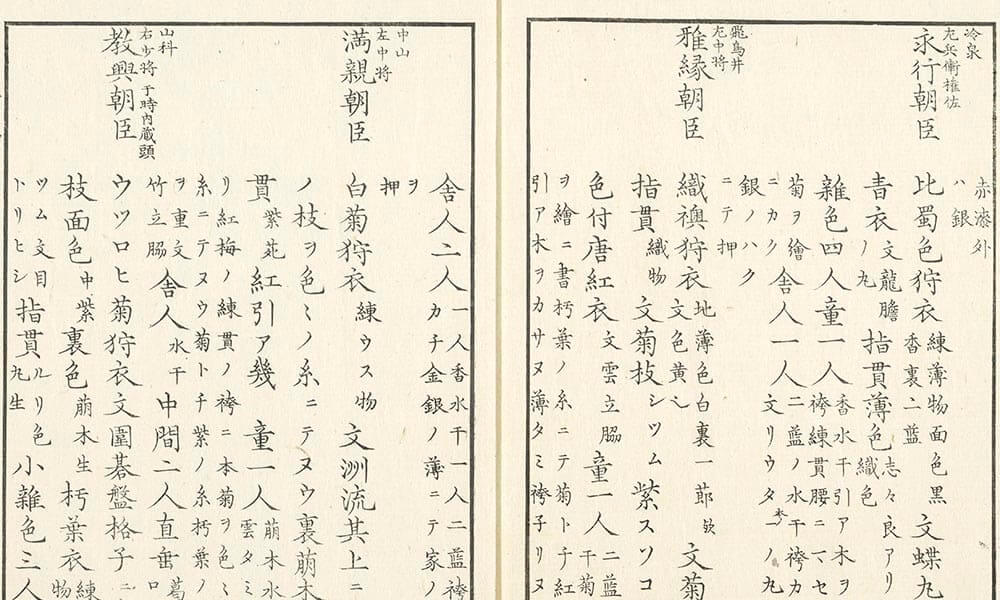 冷泉
左兵衛権佐
永行朝臣
赤漆外
ハ銀
比蜀色狩衣 練薄物面色黒 香裏二藍 文蝶丸
青衣 文龍膽ノ丸 指貫薄色 志々良アリ 織色
雑色四人童一人 香水干引ア木ヲ 袴練貫腰ニマセ
菊ヲ繪ニカク 舎人一人 二藍ノ水干袴カ 文リウタンノ丸
銀ノハク
ニテ押
飛鳥井
左中将
雅縁朝臣
織襖狩衣 地薄色白裏一節歟 文色黄シ 文菊
指貫 織物 文菊枝シツム紫スソコ
色付唐紅衣 文雲立脇 童一人 二藍 干菊
ヲ繪ニ書朽葉ノ糸ニテ菊トチ紅
引ア木ヲカサヌ薄タミ袴子リヌ
舎人二人 一人香水干一人二藍袴 カチ金銀ノ薄ニテ家ノ
ヲ
押
中山
左中将
満親朝臣
白菊狩衣 練ウス物 文洲流其上ニ
ノ枝ヲ色ミノ糸ニテヌウ裏萠木
貫 紫苑 紅引ア幾 童一人 萠木水 雲タミ
リ紅梅ノ練貫ノ袴ニ本菊ヲ色ミ
糸ニテヌウ菊トチ紫ノ糸朽葉ノ
ヲ重文 竹立脇 舎人 水干 中間二人直垂 葛 ロ
山科
右少将 于時内蔵頭
教興朝臣
ウツロヒ菊狩衣文圍碁盤格子ニ
枝面色 中紫 裏色 萠木生 朽葉衣 練物
ツム文目 トリヒシ 指貫 ルリ色 丸生 小雑色三人